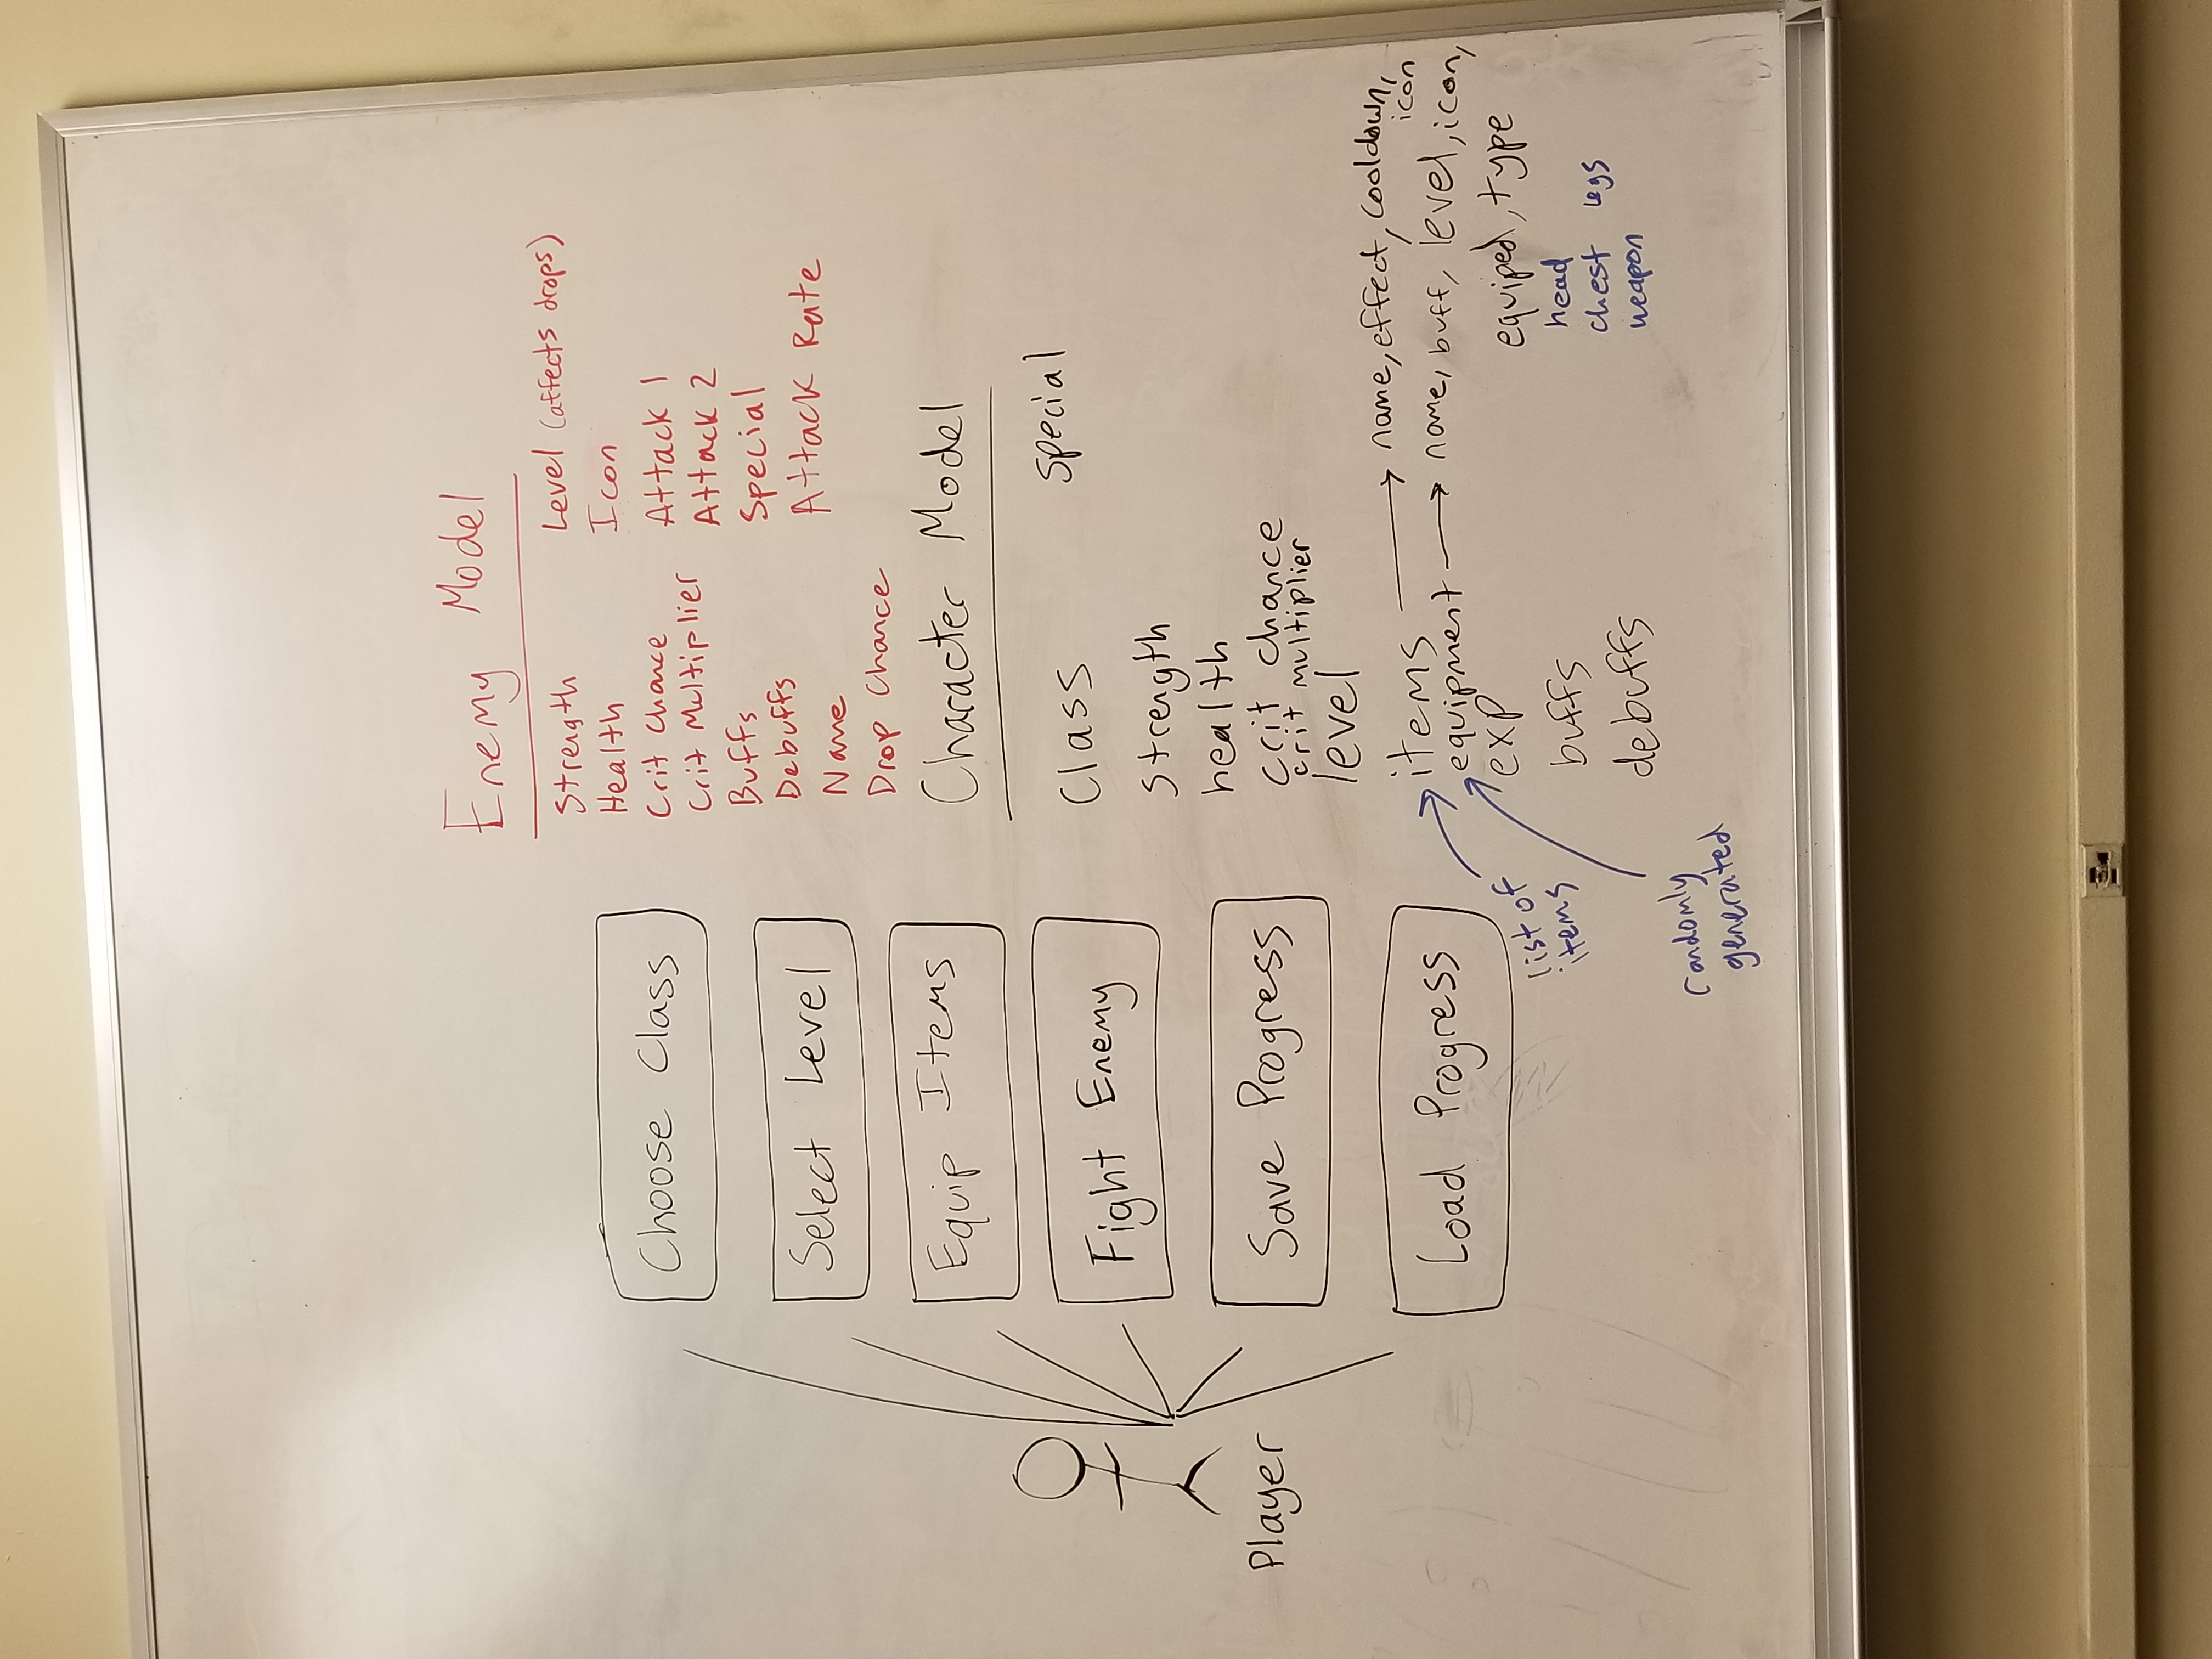 Choose Class
Select Level
Equip Items
Fight Enemy
Save Progress
Load Progress
Player
Enemy Model
Strength
Health
Crit Chance
Crit Multiplier
Buffs
Debuffs
Name
Drop Chance
Level (affects drops)
Icon
Attack 1
Attack 2
Special
Attack Rate
Character Model
Class
Special
Strength
health
crit chance
crit multiplier
level
items → name, effect, cooldown,
icon
equipment → name, buff, level, icon,
equiped, type
head
chest legs
weapon
exp
buffs
debuffs
list of
items
randomly
generated